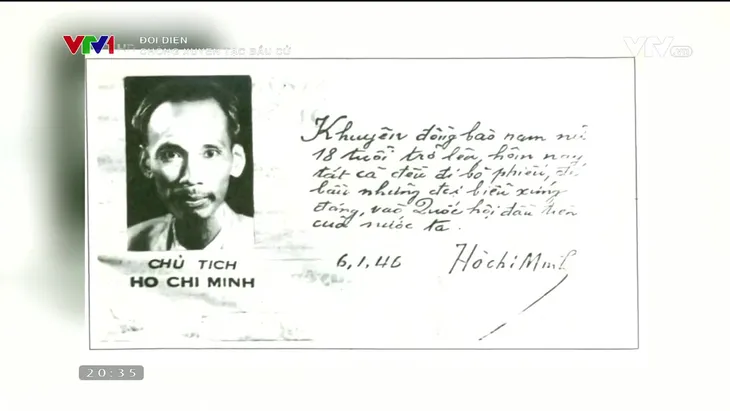 VTV1
ĐỐI DIỆN
CHỐNG XUYÊN TẠC BẦU CỬ
VTV.vn
Khuyên đồng bào nam nữ
18 tuổi trở lên, hôm nay
tất cả đều đi bỏ phiếu, để
bầu những đại biểu xứng
đáng, vào Quốc hội đầu tiên
của nước ta.
6,1,46 HồchíMinh
CHỦ TỊCH
HO CHI MINH
20:35